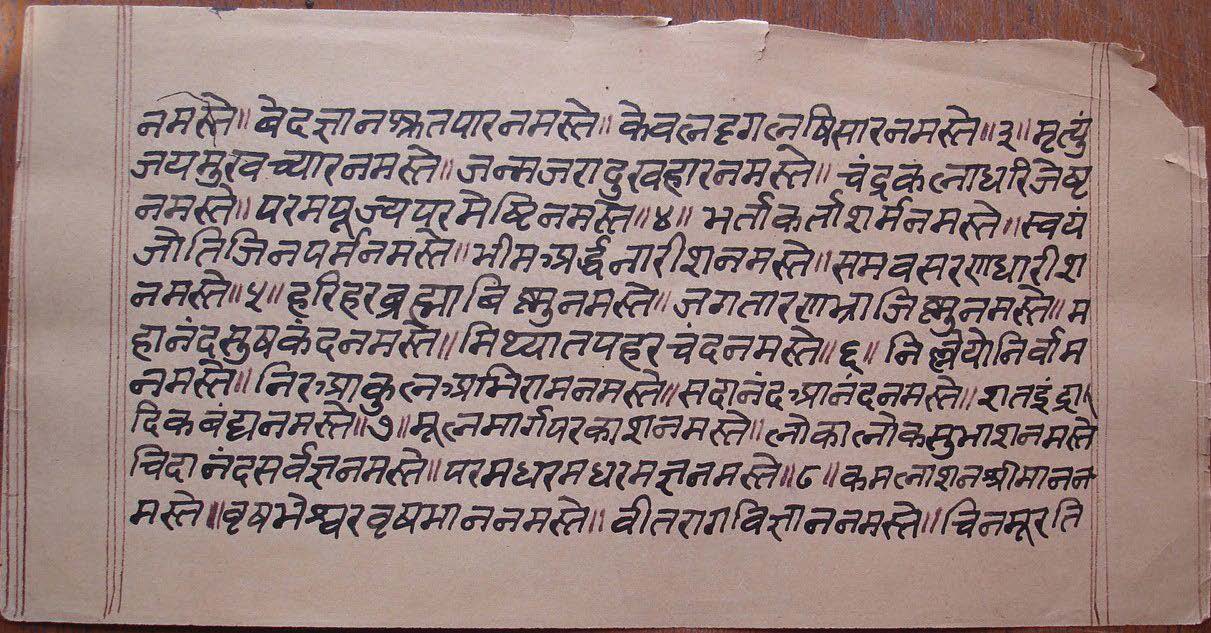 नमस्ते॥ बेदज्ञानश्रुतपारनमस्ते॥ केवलदृगलषिसारनमस्ते॥३॥ मृत्युं
जयमुखच्यारनमस्ते॥ जन्मजरादुखहारनमस्ते॥ चंद्रकलाधारिजेष्ट
नमस्ते॥ परमपूज्यपरमेष्टिनमस्ते॥४॥ भर्ताकर्ताशर्मनमस्ते॥ स्वयं
जोतिजिनपर्मनमस्ते॥ भीमअर्द्धनारीशनमस्ते॥ समवसरणधारीश
नमस्ते॥५॥ हरिहरब्रह्माबिष्णुनमस्ते॥ जगतारण जिष्णुनमस्ते॥ म
हानंदसुषकंदनमस्ते॥ मिथ्यातपहरचंदनमस्ते॥६॥ निर्वाम
नमस्ते॥ निरआकुलअभिरामनमस्ते॥ सदानंदआनंदनमस्ते॥ शतइंद्रा
दिकबंद्यनमस्ते॥७॥ मूलमार्गपरकाशनमस्ते॥ लोकालोकसुभाशनमस्ते
चिदानंदसर्वज्ञनमस्ते॥ परमधरमधरमज्ञनमस्ते॥८॥ कमलाशनश्रीमानन
मस्ते॥ वृषभेश्वरवृषमाननमस्ते॥ वीतरागविज्ञाननमस्ते॥ चिनमूरति